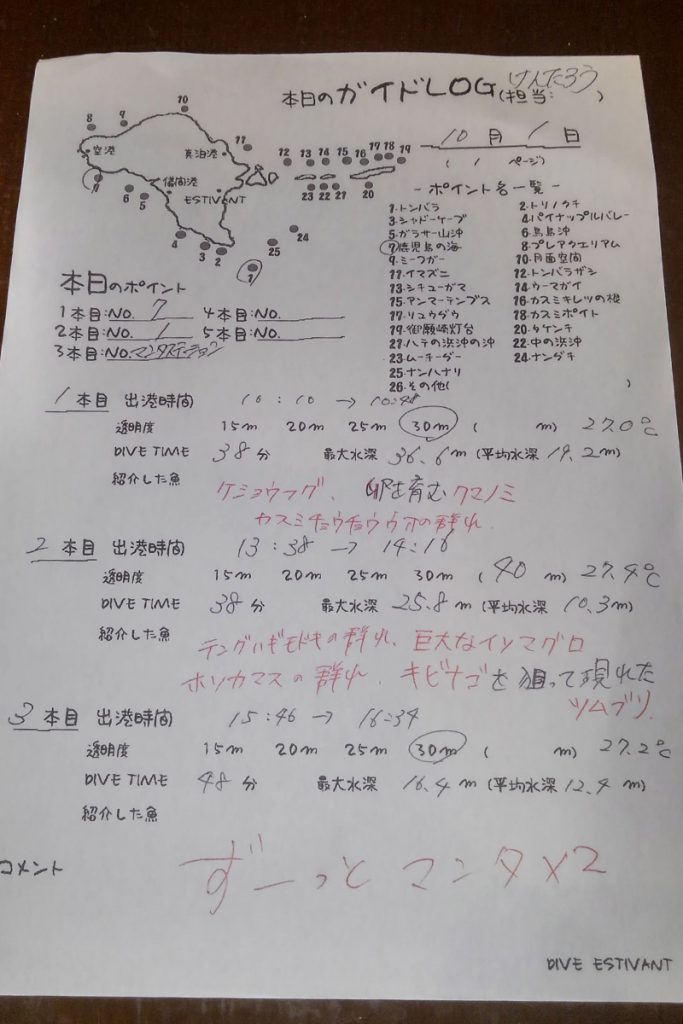 本日のガイドLOG(担当:けんたろう)
10月1日
(1ページ)
8
9
10
空港
真泊港
11
12 13 14 15 16 17 18 19
7
6 5
儀間港
ESTIVANT
23 22 21
20
4
3
2
25
24
1
- ポイント名一覧 -
1.トンバラ 2.トリノクチ
3.シャドーケーブ 4.パイナップルバレー
5.ガラサー山沖 6.鳥島沖
7.鹿児島の海 8.プレアクエリアム
9.ミーフガー 10.月面空間
11.イマズニ 12.トンバラザシ
13.シチューガマ 14.ウーマガイ
15.アンマーテンプス 16.カスミキレツの根
17.リュウグウ 18.カスミポイント
19.御願崎灯台 20.タケンチ
21.ハテの浜沖の沖 22.中の浜沖
23.ムーチーグー 24.ナングチ
25.ナンハナリ
26.その他( )
本日のポイント
1本目:NO. 7 4本目:NO.
2本目:NO. 1 5本目:NO.
3本目:NO.マンタステーション
1本目 出港時間 10:10 → 10:48
透明度 15m 20m 25m 30m ( m) 27.0℃
DIVE TIME 38分 最大水深 36.6m (平均水深 19.2m)
紹介した魚
ケショウフグ、卵を育むクマノミ
カスミチョウチョウウオの群れ
2本目 出港時間 13:38 → 14:16
透明度 15m 20m 25m 30m (40m) 27.4℃
DIVE TIME 38分 最大水深 25.8m (平均水深 10.3m)
紹介した魚
テングハギモドキの群れ、巨大なイソマグロ
ホソカマスの群れ、キビナゴを狙って現れた
ツムブリ
3本目 出港時間 15:46 → 16:34
透明度 15m 20m 25m 30m ( m) 27.2℃
DIVE TIME 48分 最大水深 16.4m (平均水深 12.4m)
紹介した魚
コメント
ずーっと マンタ×2
DIVE ESTIVANT